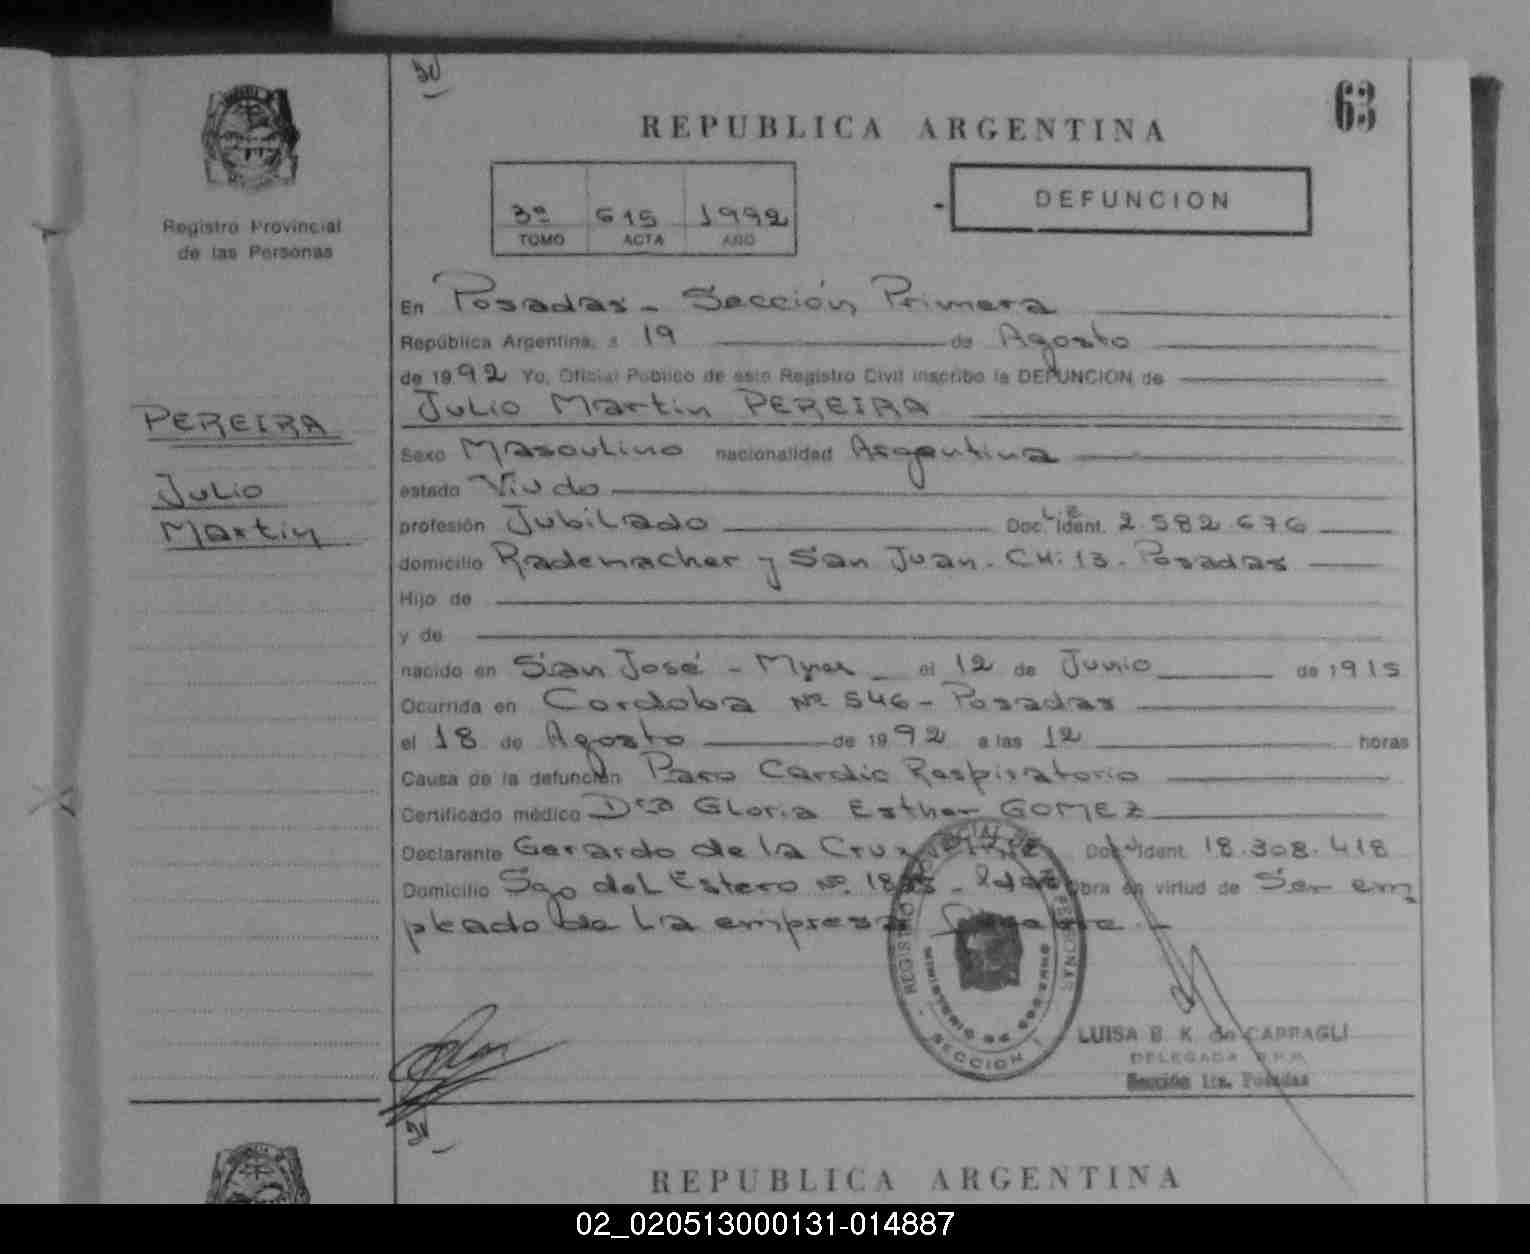 63
REPUBLICA ARGENTINA
DEFUNCION
3º 615 1992
TOMO ACTA AÑO
Registro Provincial
de las Personas
PEREIRA
Julio
Martin
En Posadas - Sección Primera
República Argentina, a 19 de Agosto
de 1992 Yo, Oficial Público de este Registro Civil inscribo la DEFUNCION de
Julio Martin PEREIRA
Sexo Masculino nacionalidad Argentina
estado Viudo
profesión Jubilado Doc. Ident. 2.582.676
domicilio Rademacher y San Juan - CH: 13 - Posadas
Hijo de
y de
nacido en San José - Mnes el 12 de Junio de 1915
Ocurrida en Cordoba Nº 546 - Posadas
el 18 de Agosto de 1992 a las 12 horas
Causa de la defunción Paro Cardio Respiratorio
Certificado médico Dra Gloria Esther GOMEZ
Declarante Gerardo de la Cruz Doc. Ident. 18.308.418
Domicilio Sgo del Estero Nº Obra en virtud de Ser em
pleado de la empresa
REGISTRO PROVINCIAL DE PERSONAS
MINISTERIO DE GOBIERNO
SECCION
LUISA B. K. de CAPPAGLI
DELEGADA R.P.P.
Sección 1ra. Posadas
REPUBLICA ARGENTINA
02_020513000131-014887